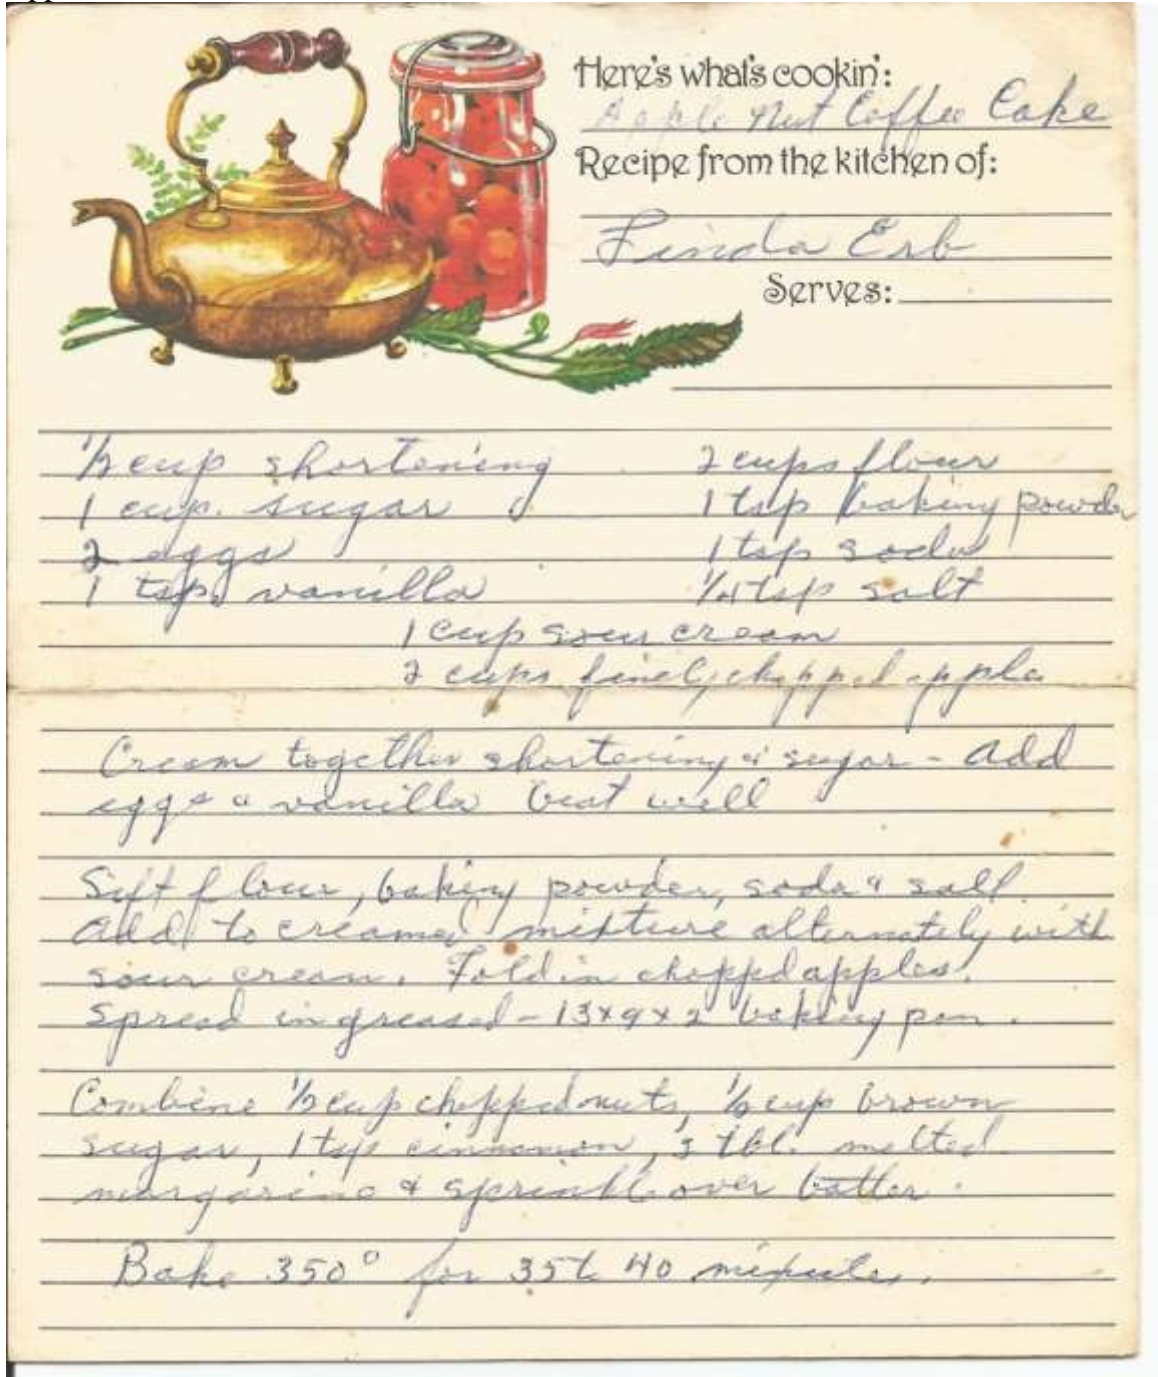 Here's what's cookin':
Apple Nut Coffee Cake
Recipe from the kitchen of:
Linda Erb
Serves:
1/2 cup shortening 2 cups flour
1 cup sugar 1 tsp baking powder
2 eggs 1 tsp soda
1 tsp. vanilla 1/4 tsp salt
1 cup sour cream
2 cups finely chopped apple
Cream together shortening & sugar - Add
eggs & vanilla beat well
Sift flour, baking powder, soda & salt
Add to creamed mixture alternately with
sour cream. Fold in chopped apples.
Spread in greased - 13x9x2 baking pan.
Combine 1/2 cup chopped nuts, 1/2 cup brown
sugar, 1 tsp cinnamon, 3 tbl. melted
margarine & sprinkle over batter.
Bake 350° for 35 to 40 minutes.